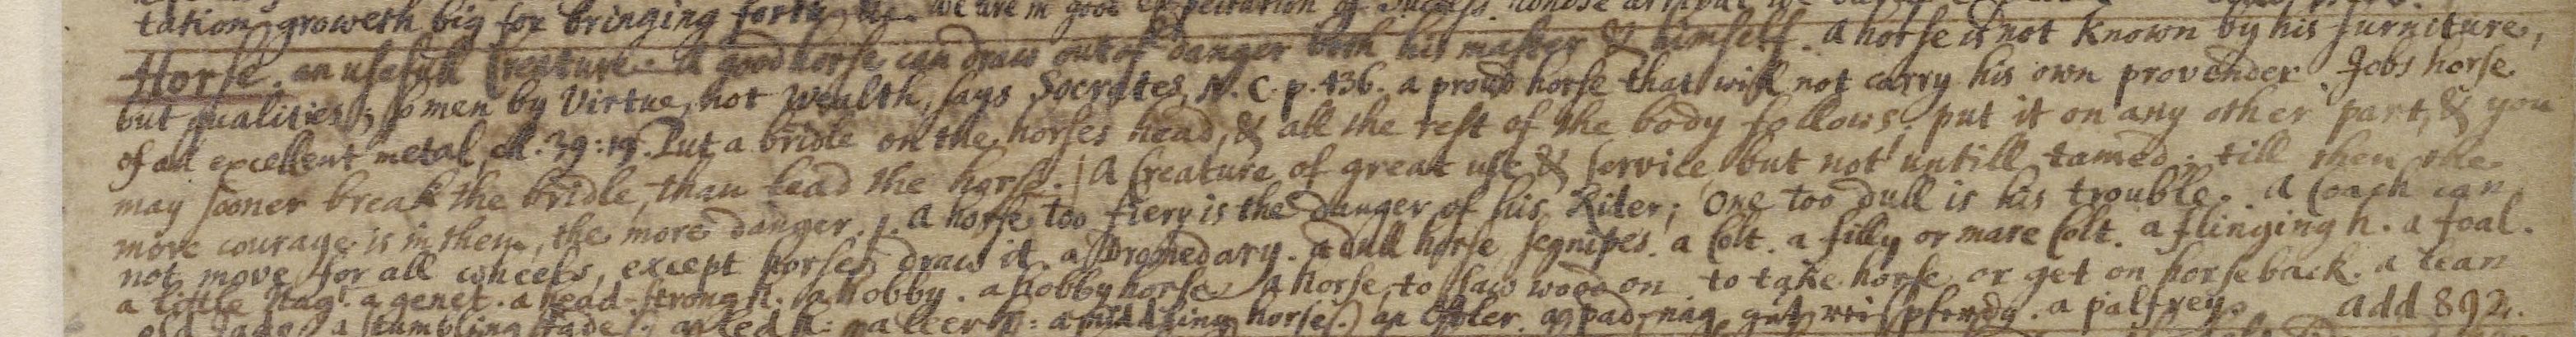 tation groweth big for bringing forth we are in good expectation of success.
Horse. an usefull Creature. A good horse can draw out of danger both his master & himself. A horse is not known by his furniture,
but qualities; so men by Virtue, not Wealth, says Socrates, N. C. p. 436. a proud horse that will not carry his own provender. Jobs horse
of an excellent metal, ch. 39: 19. Put a bridle on the horses head, & all the rest of the body follows: put it on any other part, & you
may sooner break the bridle, than lead the horse. | A Creature of great use & service, but not untill tamed: till then the
more courage is in them, the more danger. A horse too fiery is the danger of his Rider; One too dull is his trouble. A Coach can
not move for all wheels, except horses draw it. a Dromedary. a dull horse segnipes. a Colt. a filly or mare Colt. a flinging h. a foal.
a little Nag. a genet. a head-strong h. a hobby. a hobby horse. A horse to saw wood on. to take horse or get on horseback. a lean
old Jade. a stumbling Jade. a led h: a middling horse.) an Ostler. a pad-nag, gut pferdg. a palfrey. add 892.